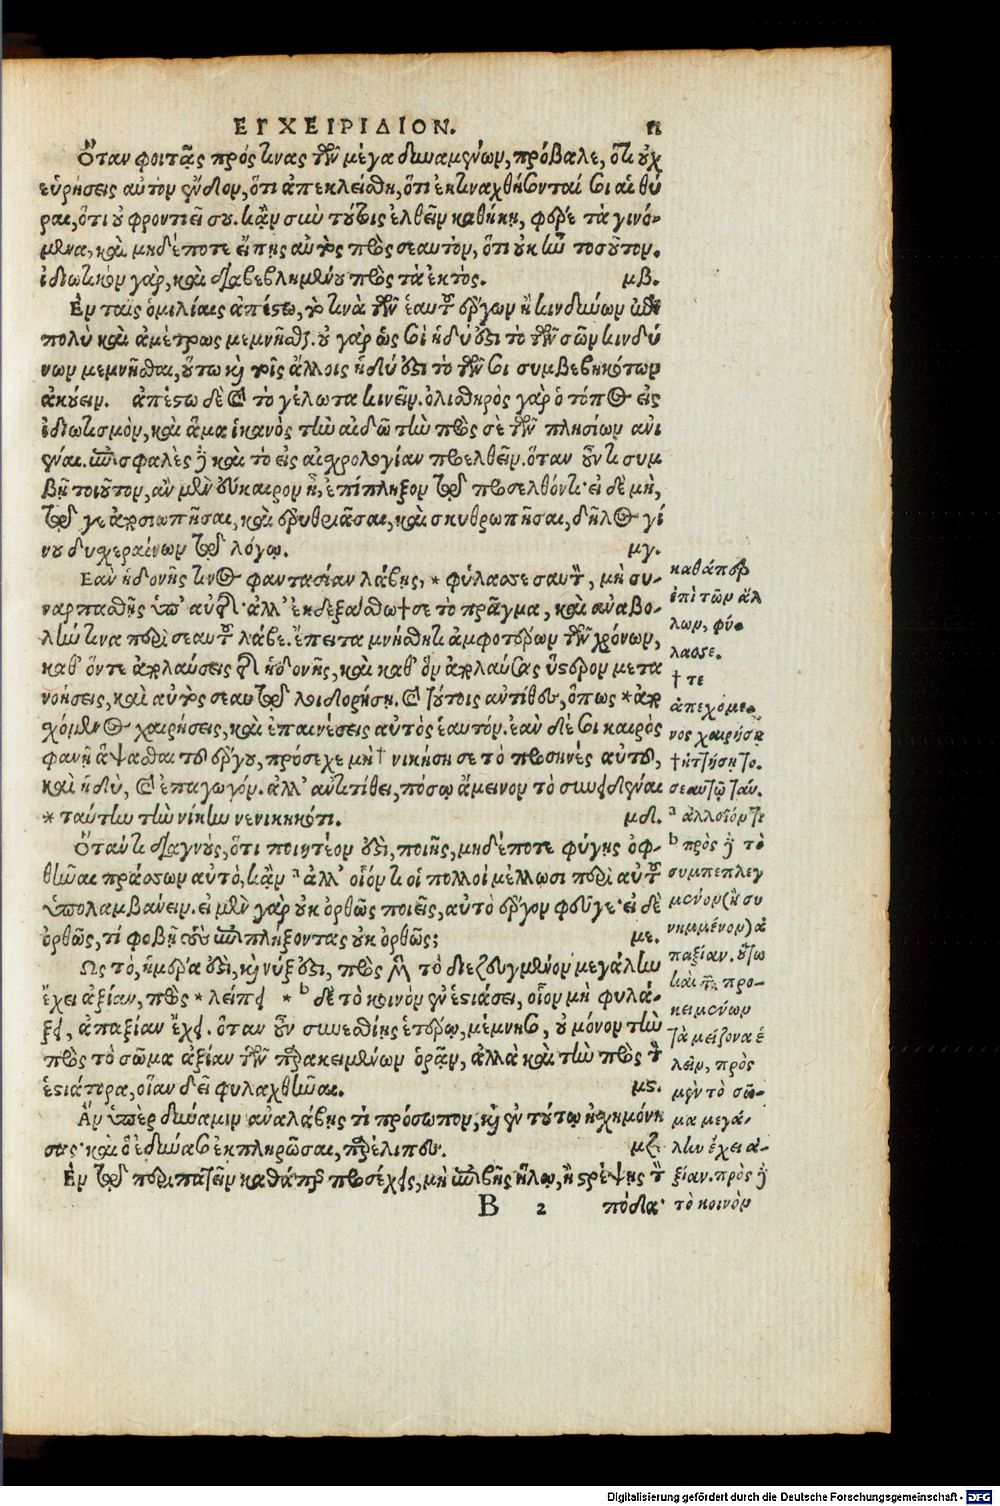 ΕΓΧΕΙΡΙΔΙΟΝ.
Ὅταν φοιτᾷς πρός τινας τῶν μέγα δυναμένων, πρόβαλε, ὅτι οὐχ
εὑρήσεις αὐτὸν ἔνδον, ὅτι ἀπεκλείσθη, ὅτι ἐκτιναχθήσονταί σοι αἱ θύ
ραι, ὅτι οὐ φροντιεῖ σου. κἂν σὺν τούτοις ἐλθεῖν καθήκῃ, φέρε τὰ γινό-
μενα, καὶ μηδέποτε εἴπῃς αὐτὸς πρὸς σεαυτὸν, ὅτι οὐκ ἦν τοσοῦτον.
ἰδιωτικὸν γὰρ, καὶ διαβεβλημένου πρὸς τὰ ἐκτός. μβ.
Ἐν ταῖς ὁμιλίαις ἀπέστω, τὸ τινὰ τῶν ἑαυτοῦ ἔργων ἢ κινδύνων ἐπὶ
πολὺ καὶ ἀμέτρως μεμνῆσθαι. οὐ γὰρ ὡς σοὶ ἡδύ ἐστι τὸ τῶν σῶν κινδύ
νων μεμνῆσθαι, οὕτω καὶ τοῖς ἄλλοις ἡδύ ἐστι τὸ τῶν σοι συμβεβηκότων
ἀκούειν. ἀπέστω δὲ καὶ τὸ γέλωτα κινεῖν. ὀλισθηρὸς γὰρ ὁ τόπος εἰς
ἰδιωτισμὸν, καὶ ἅμα ἱκανὸς τὴν αἰδῶ τὴν πρὸς σὲ τῶν πλησίων ἀνι
έναι. ἐπισφαλὲς δὲ καὶ τὸ εἰς αἰσχρολογίαν προελθεῖν. ὅταν οὖν τι συμ
βῇ τοιοῦτον, ἂν μὲν εὔκαιρον ᾖ, ἐπίπληξον τῷ προσελθόντι· εἰ δὲ μὴ,
τῷ γε ἀποσιωπῆσαι, καὶ ἐρυθριᾶσαι, καὶ σκυθρωπῆσαι, δῆλος γί
νου δυσχεραίνων τῷ λόγῳ. μγ.
Ἐὰν ἡδονῆς τινος φαντασίαν λάβῃς, * φύλασσε σαυτὸν, μὴ συ-
ναρπασθῇς ὑπ' αὐτῆς· ἀλλ' ἐκδεξάσθω † σε τὸ πρᾶγμα, καὶ ἀναβο-
λήν τινα παρὰ σεαυτοῦ λάβε. ἔπειτα μνήσθητι ἀμφοτέρων τῶν χρόνων,
καθ' ὅν τε ἀπολαύσεις τῆς ἡδονῆς, καὶ καθ' ὃν ἀπολαύσας ὕστερον μετα
νοήσεις, καὶ αὐτὸς σεαυτῷ λοιδορήσῃ. καὶ τούτοις ἀντίθες, ὅπως * ἀπο
χόμενος χαιρήσεις, καὶ ἐπαινέσεις αὐτὸς ἑαυτόν. ἐὰν δέ σοι καιρὸς
φανῇ ἅψασθαι τοῦ ἔργου, πρόσεχε μὴ † νικήσῃ σε τὸ προσηνὲς αὐτοῦ,
καὶ ἡδὺ, καὶ ἐπαγωγόν. ἀλλ' ἀντιτίθει, πόσῳ ἄμεινον τὸ συνειδέναι
* ταύτην τὴν νίκην νενικηκότι. μδ.
Ὅταν τι διαγνοὺς, ὅτι ποιητέον ἐστὶ, ποιῇς, μηδέποτε φύγῃς ὀφ-
θῆναι πράσσων αὐτὸ, κἂν ᵃ ἀλλ' οἷόν τι οἱ πολλοὶ μέλλωσι περὶ αὐτοῦ
ὑπολαμβάνειν. εἰ μὲν γὰρ οὐκ ὀρθῶς ποιεῖς, αὐτὸ τὸ ἔργον φεῦγε· εἰ δὲ
ὀρθῶς, τί φοβῇ τοὺς ἐπιπλήξοντας οὐκ ὀρθῶς; με.
Ὡς τὸ, ἡμέρα ἐστὶ, καὶ νύξ ἐστι, πρὸς μὲν τὸ διεζευγμένον μεγάλην
ἔχει ἀξίαν, πρὸς * λείπει * ᵇ δὲ τὸ κοινὸν ἐν ἑστιάσει, οἷον μὴ φυλά-
ξει, ἀπαξίαν ἔχει. ὅταν οὖν συνεσθίῃς ἑτέρῳ, μέμνησο, οὐ μόνον τὴν
πρὸς τὸ σῶμα ἀξίαν τῶν παρακειμένων ὁρᾷν, ἀλλὰ καὶ τὴν πρὸς τὸν
ἑστιάτορα, οἵαν δεῖ φυλαχθῆναι. μϛ.
Ἂν ὑπὲρ δύναμιν ἀναλάβῃς τι πρόσωπον, καὶ ἐν τούτῳ ἠσχημόνη
σας· καὶ ὃ ἐδύνασο ἐκπληρῶσαι, παρέλιπες. μζ.
Ἐν τῷ περιπατεῖν καθάπερ προσέχεις, μὴ ἐπιβῇς ἥλῳ, ἢ στρέψῃς τὸν
B 2 πόδα·
καθάπερ
ἐπὶ τῶν ἄλ
λων, φύ-
λασσε.
† τε
ἀπεχόμε-
νος χαιρήσῃ
† ἡττήσῃ το.
σεαυτῷ ταύ.
ᵃ ἀλλοῖόν τε
ᵇ πρὸς δὲ τὸ
συμπεπλεγ
μένον (ἢ συ
νημμένον) ἀ
παξίαν. οὕτω
καὶ τῶν προ-
κειμένων
τὰ μείζονα ἑ
λεῖν, πρὸς
μὲν τὸ σῶ-
μα μεγά-
λην ἔχει ἀ-
ξίαν. πρὸς δὲ
τὸ κοινὸν
Digitalisierung gefördert durch die Deutsche Forschungsgemeinschaft - DFG